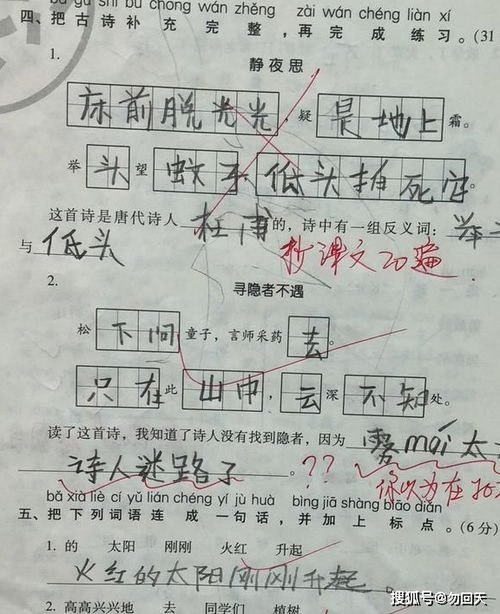 bǎ gǔ shī bǔ chōng wán zhěng zài wán chéng liàn xí
四、把古诗补充完整,再完成练习。(31
1. 静夜思
床前脱光光,疑是地上霜。
举头望蚊子,低头拍死它。
这首诗是唐代诗人杜甫的,诗中有一组反义词:举
与低头
抄课文20遍
2. 寻隐者不遇
松下问童子,言师采药去。
只在此山中,云深不知处。
读了这首诗,我知道了诗人没有找到隐者,因为雾mai太
诗人迷路了。??
你以为在
bǎ xià liè cí yǔ lián chéng yí jù huà bìng jiā shàng biāo diǎn
五、把下列词语连成一句话,并加上标点。(6分)
1. 的 太阳 刚刚 火红 升起
火红的太阳刚刚升起。
2. 高高兴兴地 去 同学们 植树
搜狐号@勿回天